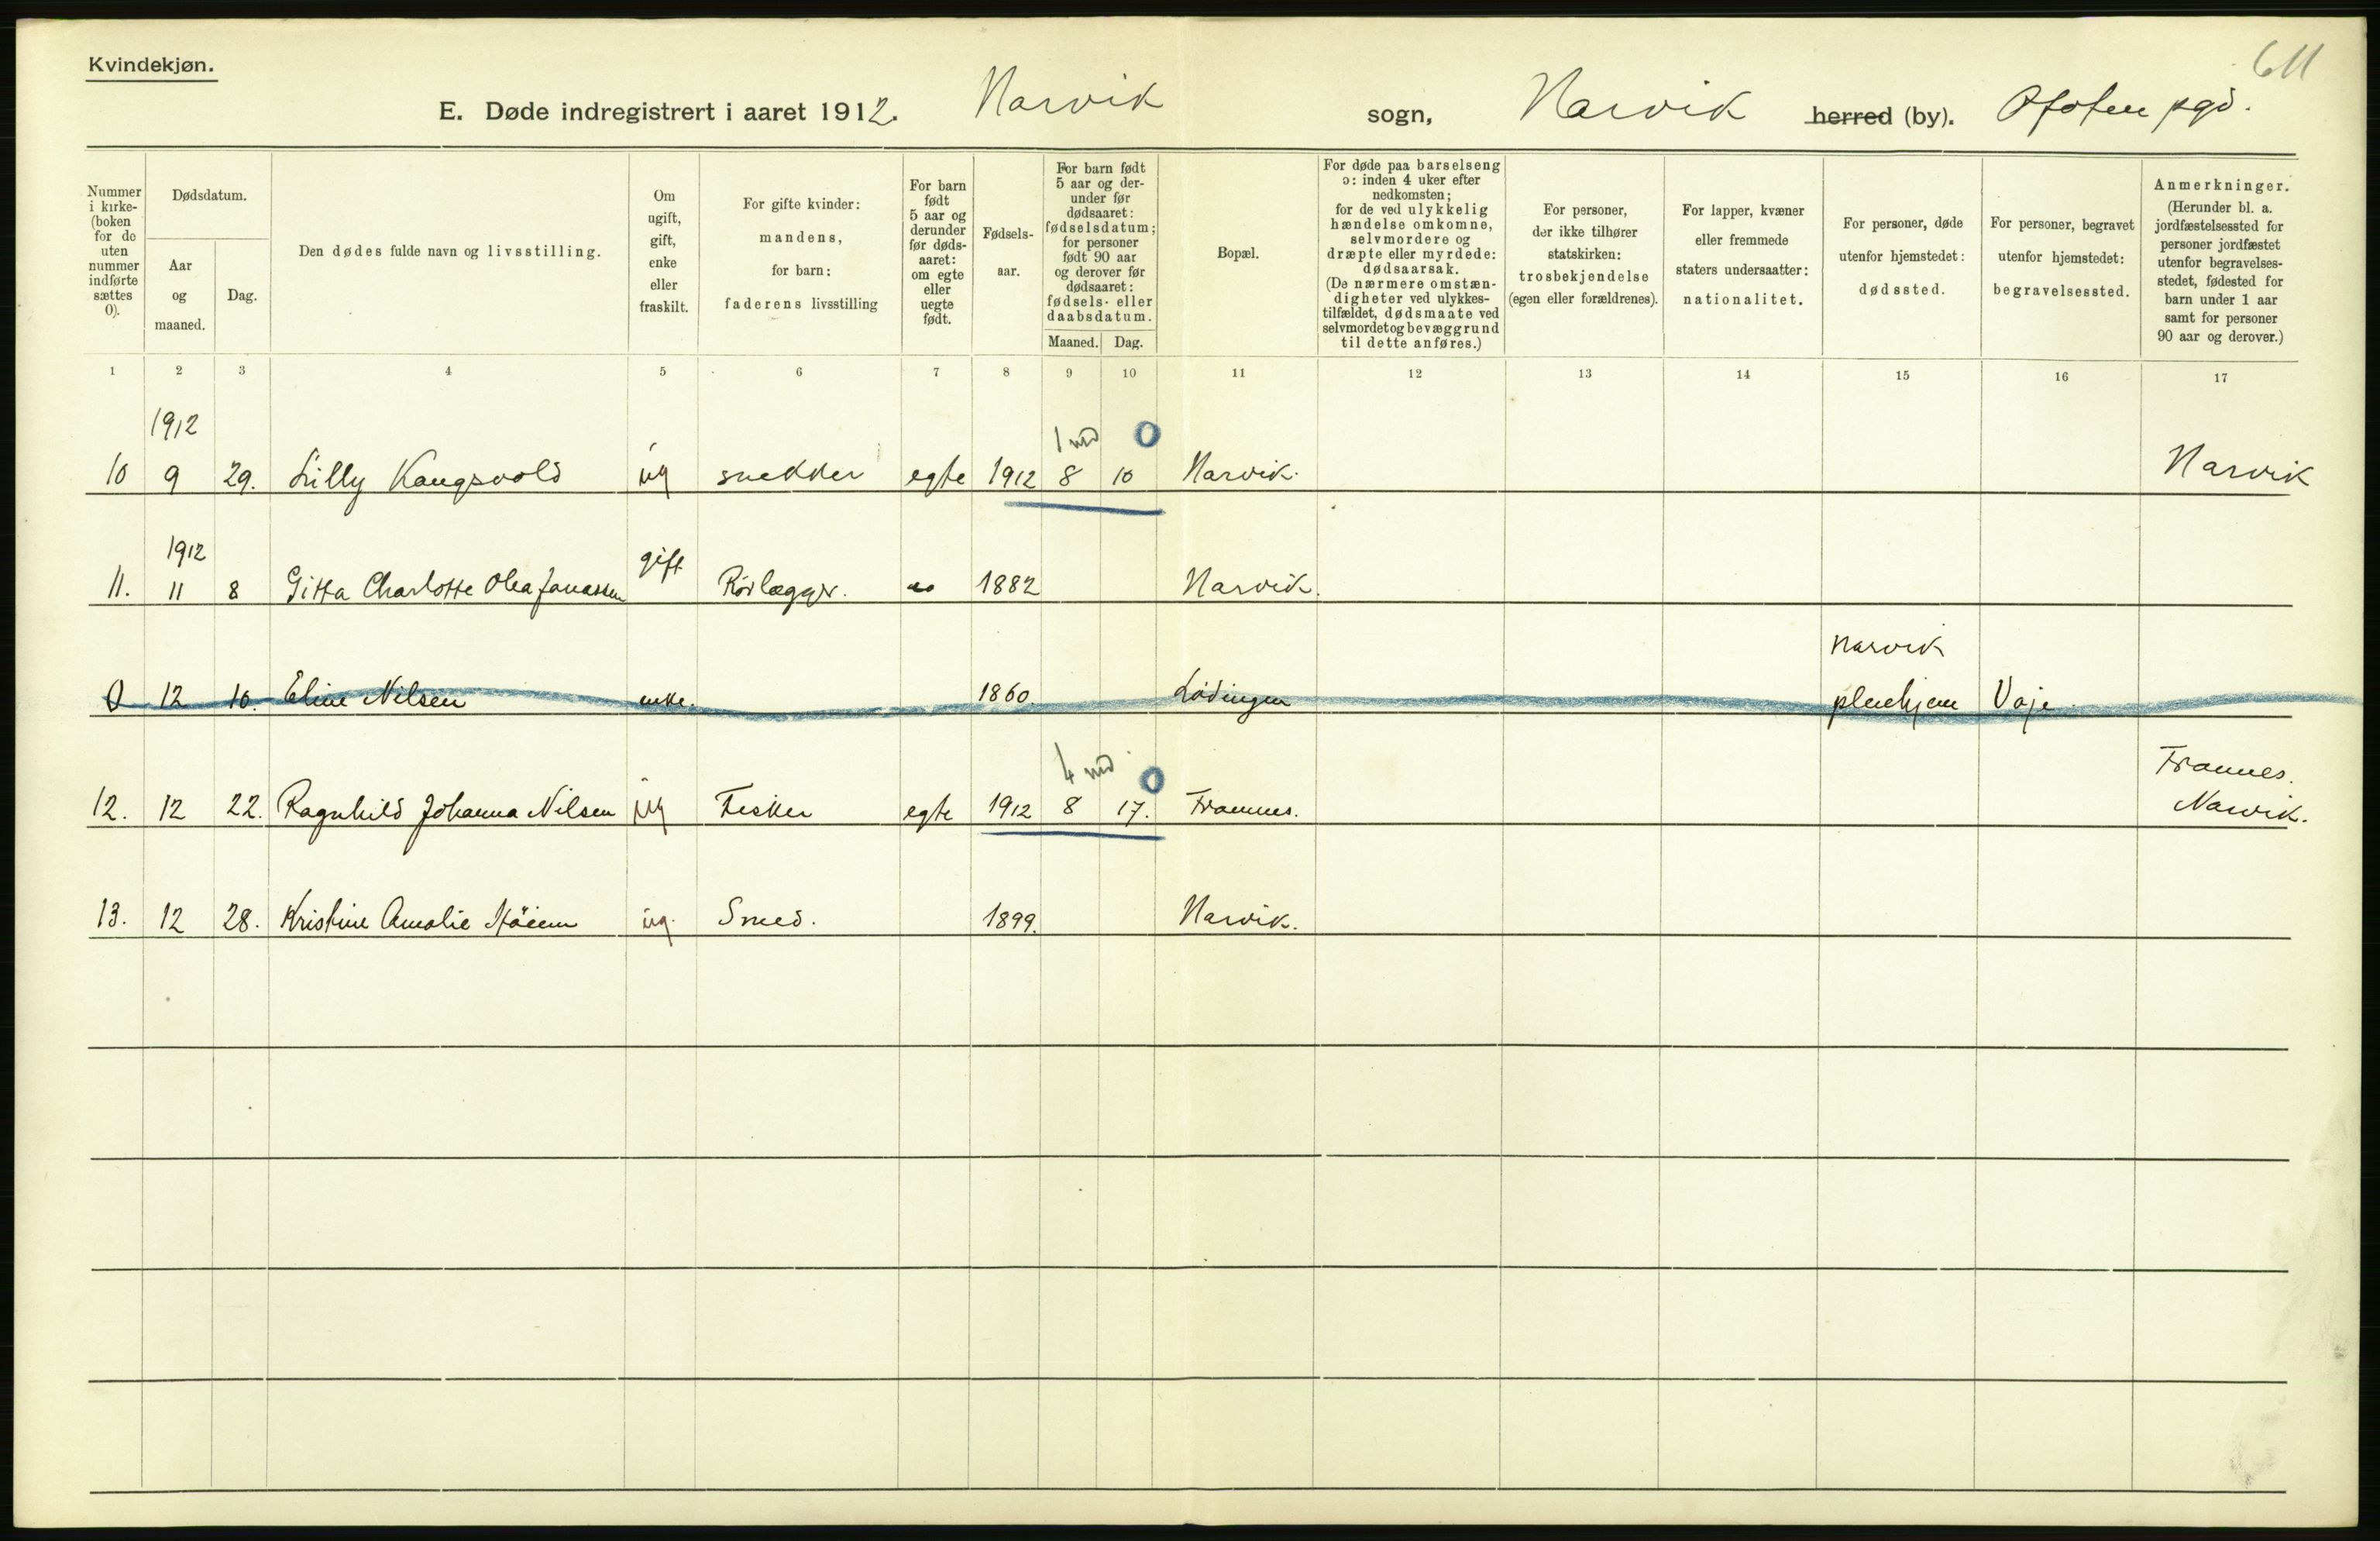 611
Kvindekjøn.
E. Døde indregistrert i aaret 1912. Narvik sogn, Narvik herred (by). Ofoten pgd.
Nummer i kirkeboken for de uten nummer indførte sættes 0).
Dødsdatum.
Aar og maaned.
Dag.
Den dødes fulde navn og livsstilling.
Om ugift, gift, enke eller fraskilt.
For gifte kvinder: mandens, for barn: faderens livsstilling
For barn født 5 aar og derunder før dødsaaret: om egte eller uegte født.
Fødselsaar.
For barn født 5 aar og derunder før dødsaaret: fødselsdatum; for personer født 90 aar og derover før dødsaaret: fødsels- eller daabsdatum.
Maaned. Dag.
Bopæl.
For døde paa barselseng ɔ: inden 4 uker efter nedkomsten; for de ved ulykkelig hændelse omkomne, selvmordere og dræpte eller myrdede: dødsaarsak. (De nærmere omstændigheter ved ulykkestilfældet, dødsmaate ved selvmordet og bevæggrund til dette anføres.)
For personer, der ikke tilhører statskirken: trosbekjendelse (egen eller forældrenes).
For lapper, kvæner eller fremmede staters undersaatter: nationalitet.
For personer, døde utenfor hjemstedet: dødssted.
For personer, begravet utenfor hjemstedet: begravelsessted.
Anmerkninger. (Herunder bl. a. jordfæstelsessted for personer jordfæstet utenfor begravelsesstedet, fødested for barn under 1 aar samt for personer 90 aar og derover.)
1 2 3 4 5 6 7 8 9 10 11 12 13 14 15 16 17
1912 1 md 0
10 9 29. Lilly Kangsvold ug snekker egte 1912 8 10 Narvik. Narvik
1912
11. 11 8 Gitta Charlotte Olea Janassen gift Rørlægger. 1882 Narvik.
Narvik
0 12 10. Eline Nilsen enke. 1860. Lødingen pleiehjem Vaje.
4 md 0 Framnes.
12. 12 22. Ragnhild Johanna Nilsen ug Fisker egte 1912 8 17. Framnes. Narvik.
13. 12 28. Kristine Amalie ug. Smed. 1899. Narvik.